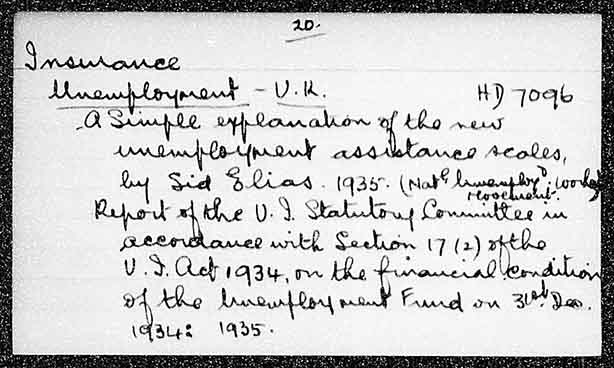 20.
Insurance
Unemployment - U.K. HD 7096
A Simple explanation of the new
unemployment assistance scales,
by Sid Elias. 1935. (Natl Unemployd. Workers
Movement.)
Report of the U.I. Statutory Committee in
accordance with Section 17(2) of the
U.I. Act 1934, on the financial condition
of the Unemployment Fund on 31st Dec.
1934: 1935.